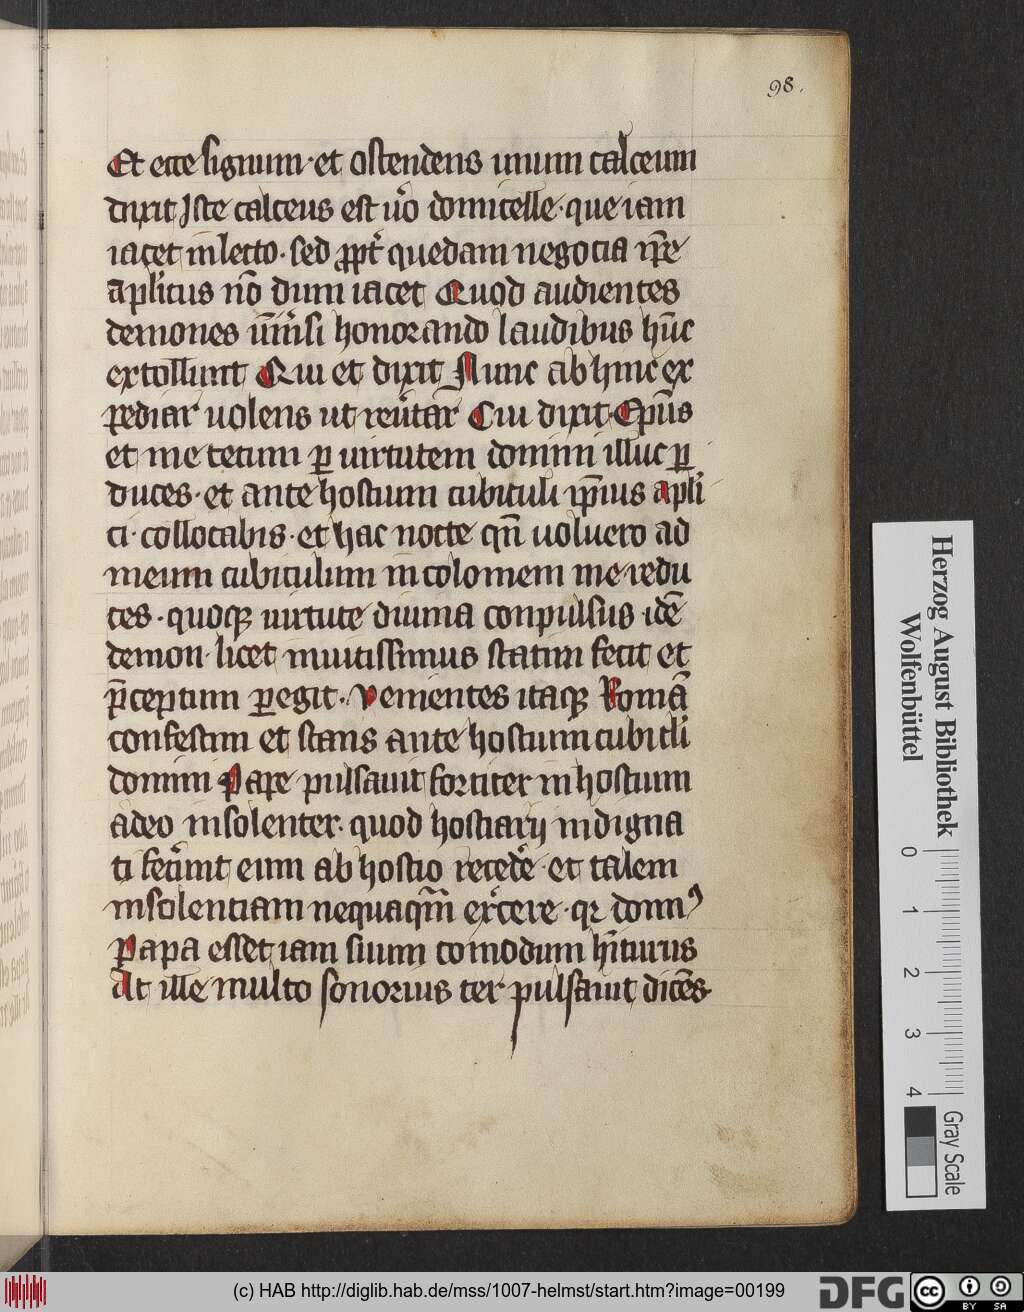 98.
Et ecce signum· et ostendens unum calceum
dixit Iste calceus est ūo domicelle· que iam
iacet in lecto· sed ꝓpt̄ quedam negocia ip̄e
aplicus nō dum iacet Quod audientes
demones honorando laudibus hūc
extollunt Qui et dixit Nunc ab hinc ex
pediar uolens ut reūtar Cui dixit Ep̄us
et me tecum ꝑ uirtutem domini illuc ꝑ
duces· et ante hostium cubiculi ip̄ius apli
ci· collocabis· et hac nocte qn̄ uoluero ad
meum cubiculum in colomem me redu
ces· quoqꝫ uirtute diuina conpulsus idē
demon· licet inuitissimus statim fecit et
p̄ceptum ꝑegit· Venientes itaqꝫ Romā
confestim et stans ante hostium cubicli
domini Pape pulsauit fortiter in hostium
adeo insolenter· quod hostiarij indigna
ti fec̄unt eum ab hostio recede᷒ et talem
insolentiam nequaqm̄ ex̄cere· qꝛ domnꝰ
Papa esset iam suum comodum h̄iturus
At ille multo sonorius ter pulsauit dicēs·
Herzog August Bibliothek
Wolfenbüttel
0 1 2 3 4
Gray Scale
(c) HAB http://diglib.hab.de/mss/1007-helmst/start.htm?image=00199
DFG
cc
BY SA